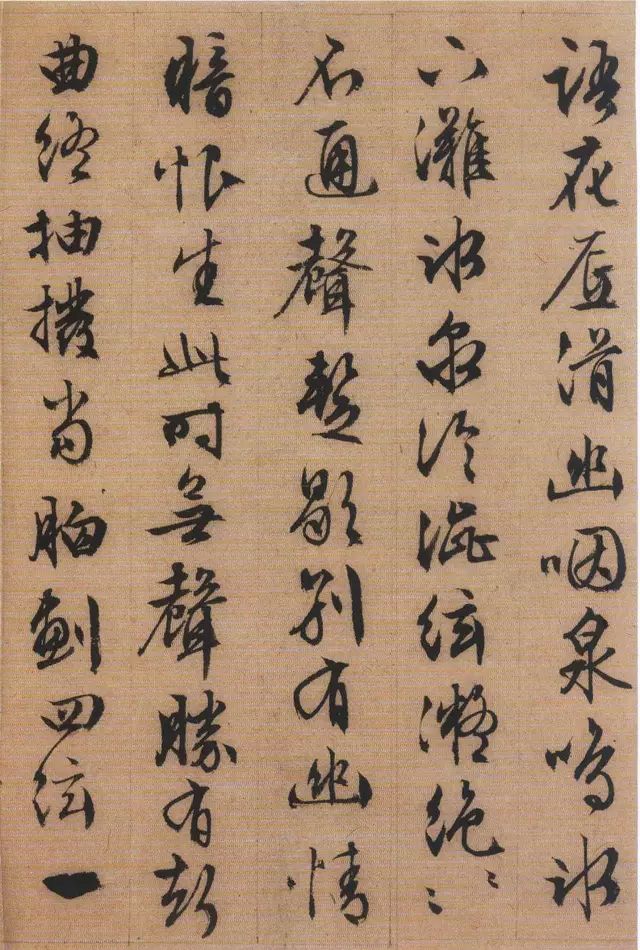 語花底滑幽咽泉鳴冰
下灘冰泉冷澁絃凝絕〻〻
不通聲暫歇別有幽情
暗恨生此時無聲勝有
曲終抽撥當胸劃四絃一